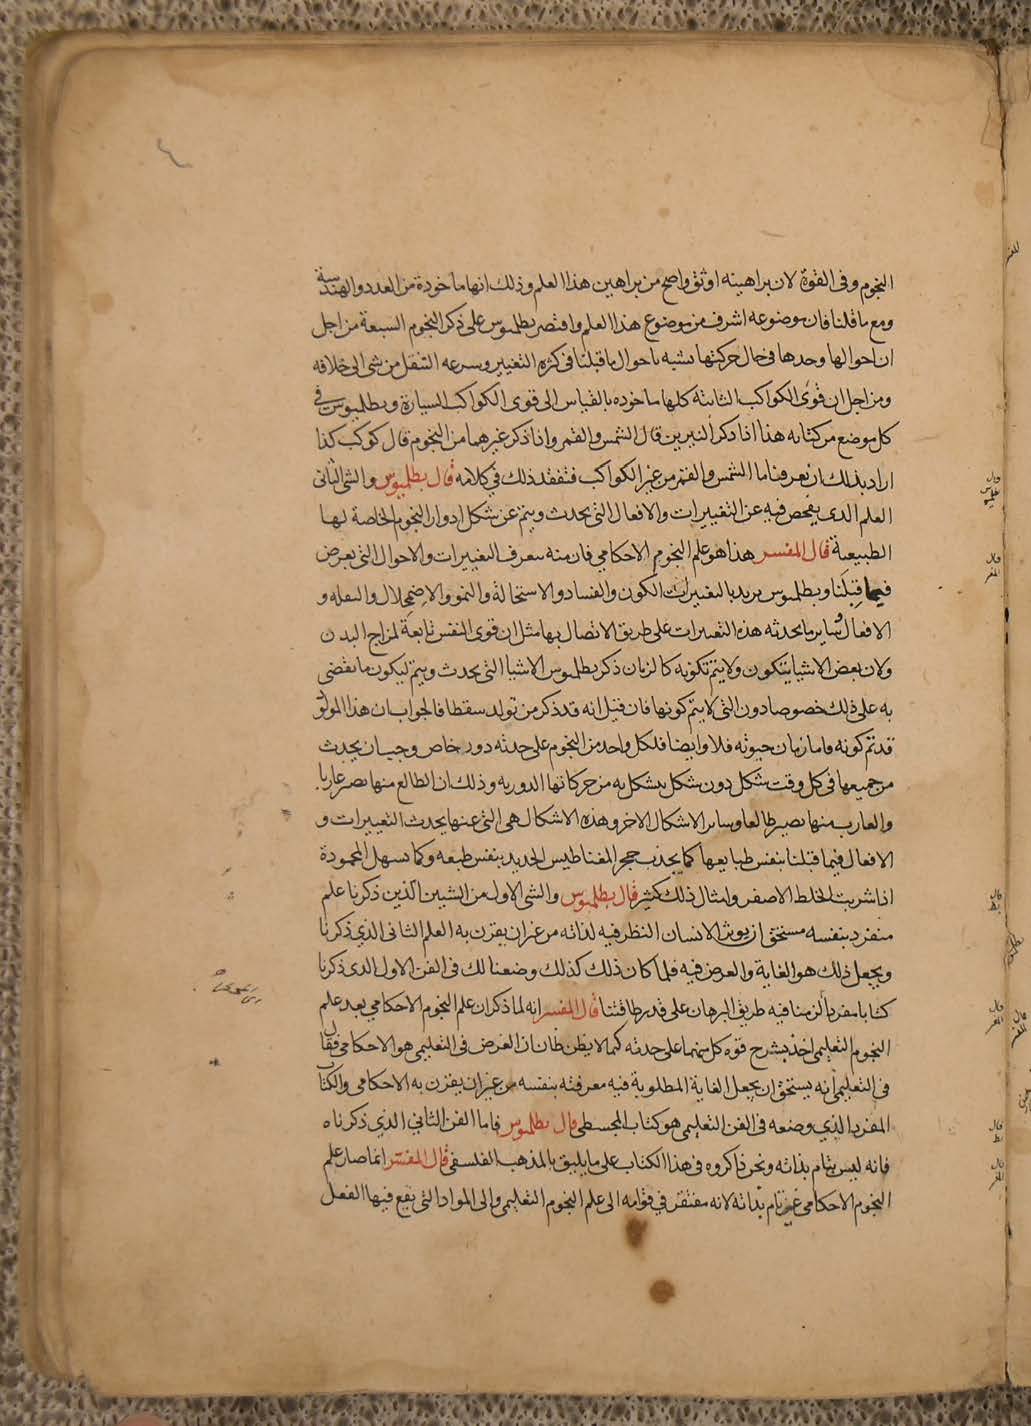 النجوم وفى القوة لان براهينه اوثق واضح من براهين هذا العلم وذلك انها ماخودة من العدد والهندسة
ومع ما قلنا فان موضوعه اشرف من موضوع هذا العلم واقتصر بطلميوس على ذكر النجوم السبعة من اجل
ان احوالها وحدها فى حال حركتها تشبه باحوال ما قبلنا فى كثره التغيير وسرعه التنقل من شى الى خلافه
ومن اجل ان قوى الكواكب الثابته كلها ماخوده بالقياس الى قوى الكواكب السيارة وبطلميوس فى
كل موضع من كتابه هذا اذا ذكر النيرين قال الشمس والقمر واذا ذكر غيرهما من النجوم قال كوكب كذا
اراد بذلك ان يعرفنا ما الشمس والقمر من غير الكواكب فتفقد ذلك فى كلامه قال بطلميوس والشى الثانى
العلم الذى يفحص فيه عن التغييرات والافعال التى يحدث ويتم عن شكل ادوار النجوم الخاصة لها
الطبيعية قال المفسر هذا هو علم النجوم الاحكامي فان منه يتعرف التغييرات والاحوال التى يعرض
فيما قبلنا وبطلميوس يريد بالتغييرات الكون والفساد والاستحالة والنمو والاضمحلال والنقله و
الافعال ساير ما يحدثه هذه التغييرات على طريق الاتصال بها مثل ان قوى النفس تابعة لمزاج البدن
ولان بعض الاشيا يتكون ولا يتم تكونه كالزمان ذكر بطلميوس الاشيا التى يحدث ويتم ليكون ما يقضى
به على ذلك خصوصا دون التى لا يتم كونها فان قيل انه قد ذكر من تولد سقطا فالجواب ان هذا المولو
قد تم كونه واما زمان حيوته فلا وايضا فلكل واحد من النجوم على حدته دور خاص وجب ان يحدث
من جميعها فى كل وقت شكل دون شكل يتشكل به من حركاتها الدوريه وذلك ان الطالع منها يصير غاربا
والغارب منها يصير طالعا وساير الاشكال الاخر وهذه الاشكال هى التى عنها يحدث التغييرات و
الافعال فيما قبلنا بنفس طبايعها كما يجذب حجر المغناطيس الحديد بنفس طبعه وكما تسهل المحمودة
اذا شربت الخلط الاصفر وامثال ذلك كثير قال بطلميوس والشى الاول من الشيين الذين ذكرنا علم
منفرد بنفسه مستحق ان يوثر الانسان النظر فيه لذاته من غير ان يقرن به العلم الثانى الذى ذكرنا
ويجعل ذلك هو الغاية والغرض فيه فلما كان ذلك كذلك وضعنا لك فى الفن الاول الذى ذكرنا
كتابا مفردا لزمنا فيه طريق البرهان على قدر طاقتنا قال المفسر انه لما ذكر ان علم النجوم الاحكامي بعد علم
النجوم التعليمى اخذ يشرح قوه كل منهما على حدته كيما لا يظن ظان ان الغرض فى التعليمى هو الاحكامى فقال
فى التعليمى انه يستحق ان يجعل الغاية المطلوبة فيه معرفته بنفسه من غير ان يقرن به الاحكامى والكتاب
المفرد الذى وضعه فى الفن التعليمى هو كتاب المجسطى قال بطلميوس فاما الفن الثاني الذي ذكرناه
فانه ليس بتام بذاته ونحن ذاكروه فى هذا الكتاب على ما يليق بالمذهب الفلسفى قال المفسر انما صار علم
النجوم الاحكامى غير تام بذاته لانه مفتقر في قوامه الى علم النجوم التعليمى والى المواد التى يقع فيها الفعل